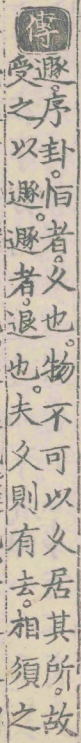 傳
遯。序卦。恒者。久也。物不可以久居其所。故
受之以遯。遯者。退也。夫久則有去。相須之